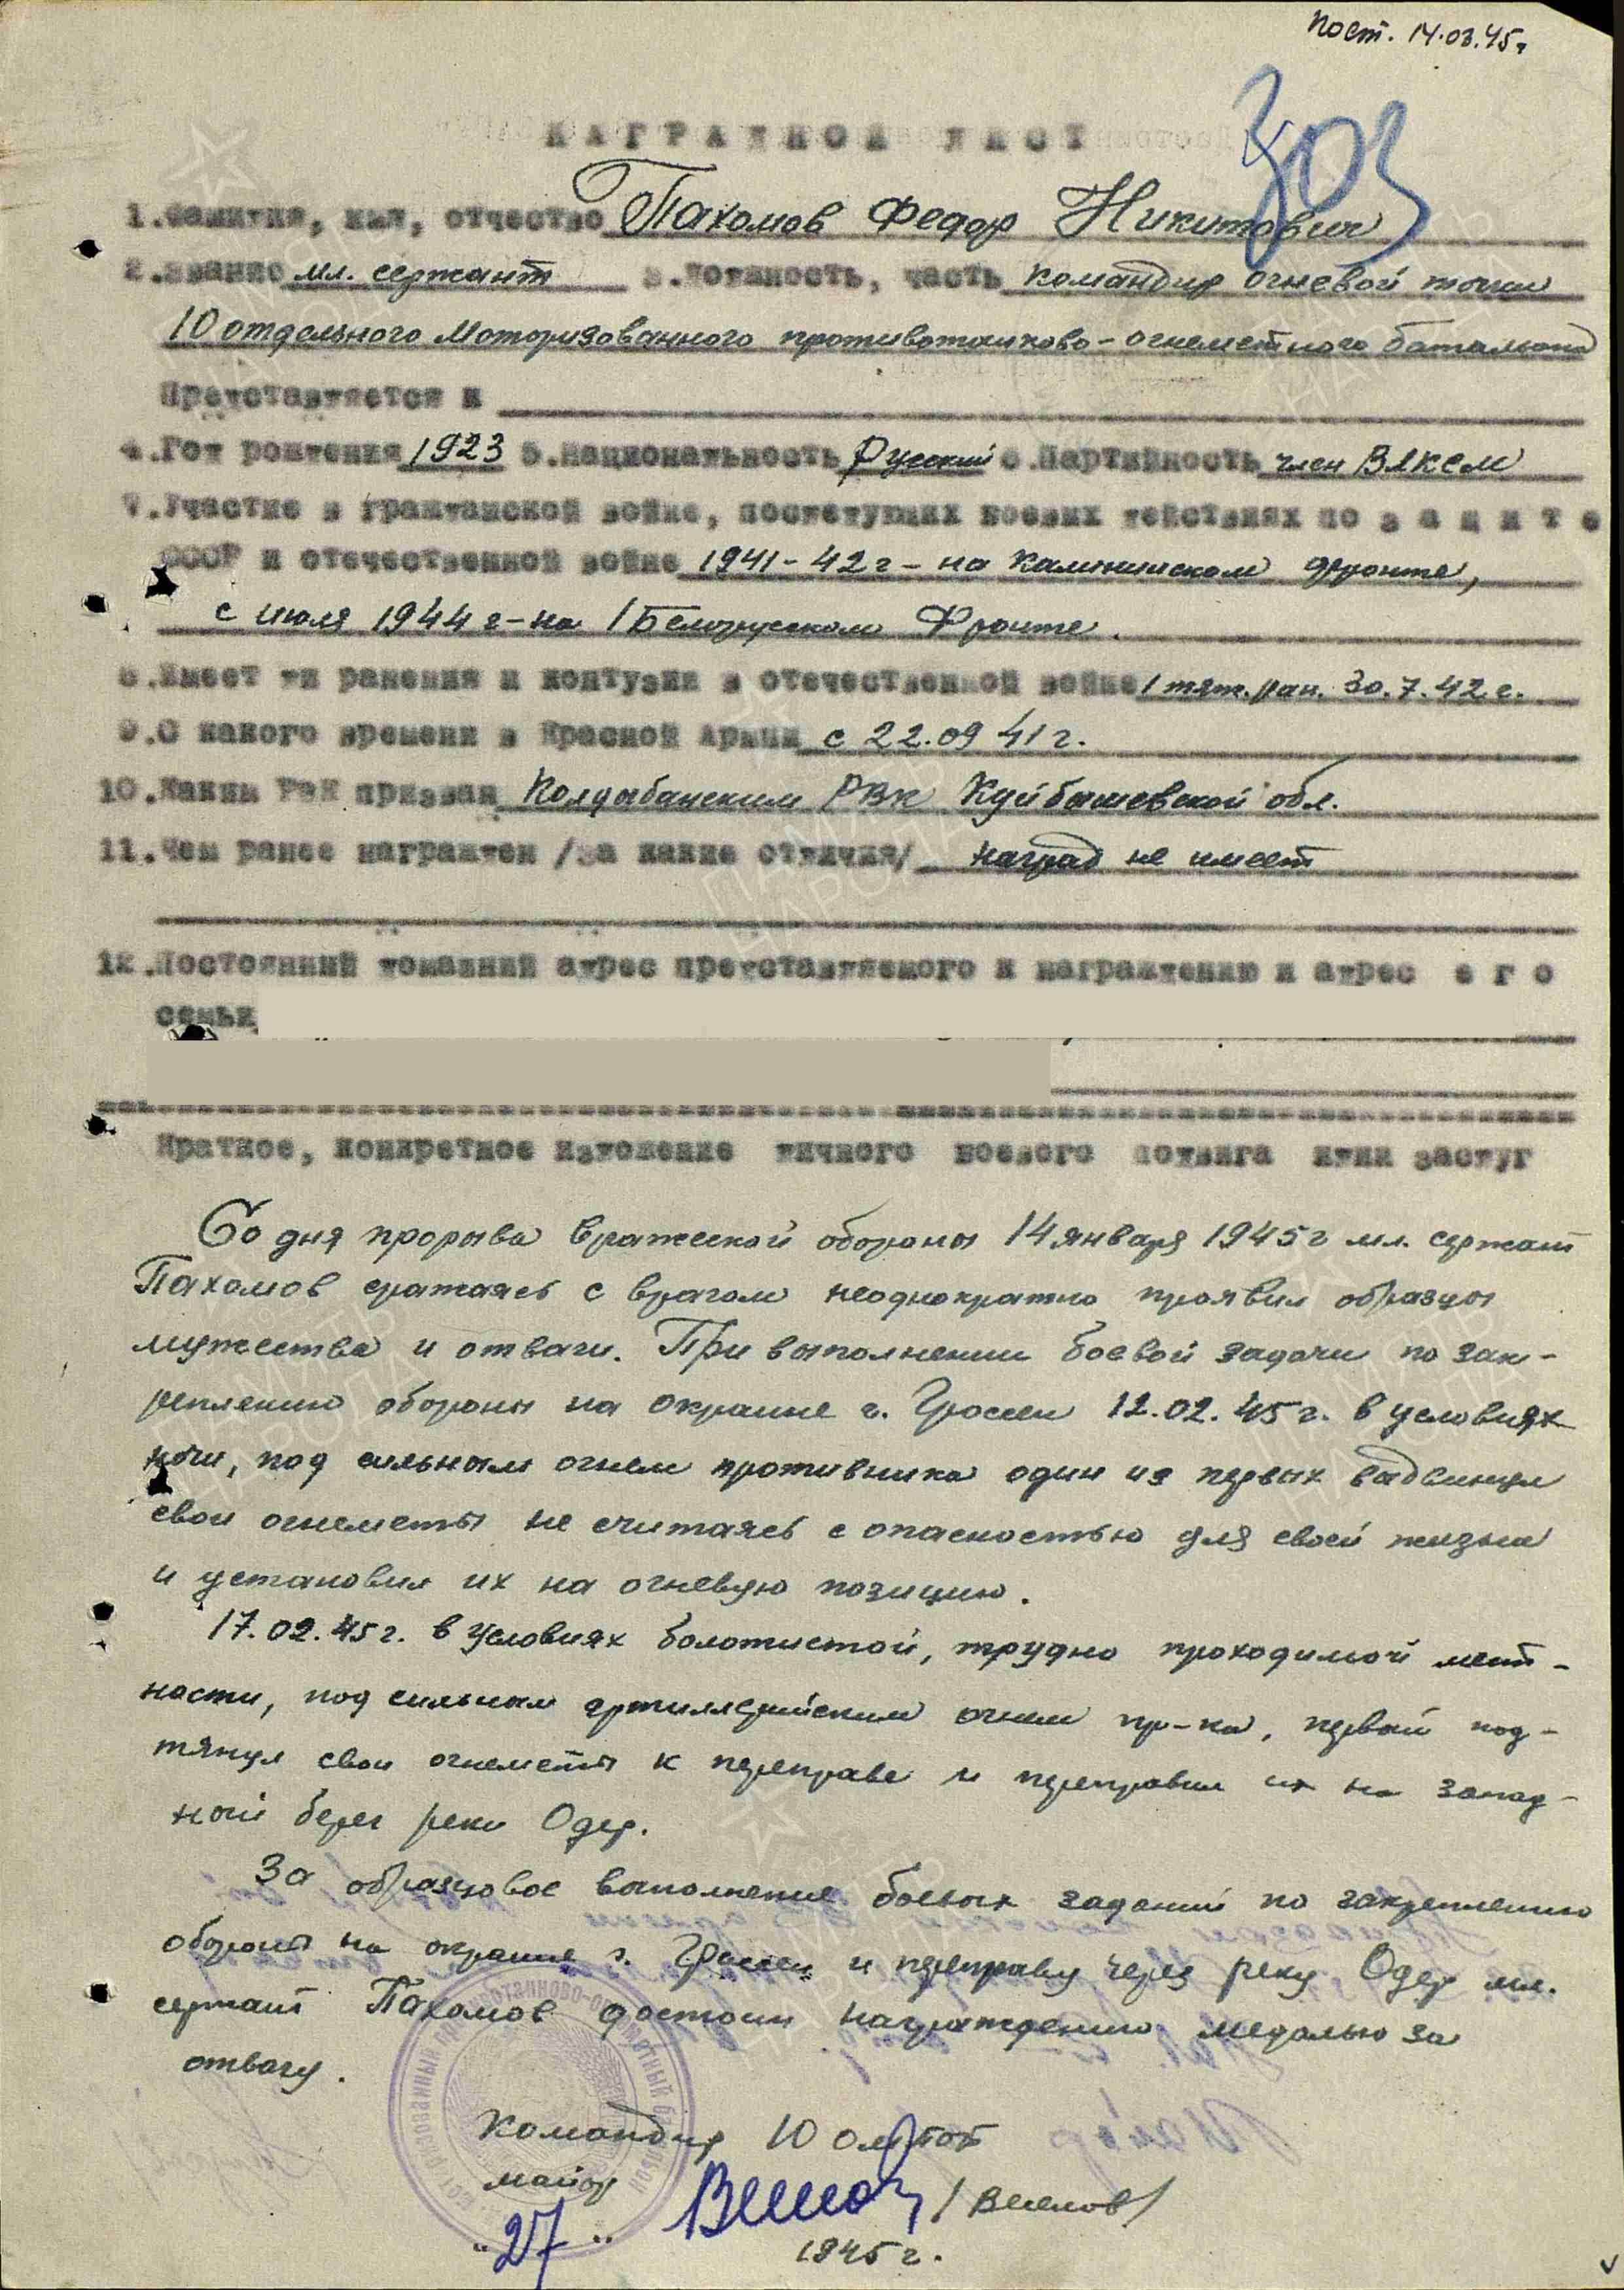 Пост. 14.03.45г
303
НАГРАДНОЙ ЛИСТ
1.Фамилия, имя, отчество Пахомов Федор Никитович
2.Звание мл. сержант 3.Должность, часть командир огневой точки
10 отдельного моторизованного противотанково-огнеметного батальона
Представляется к
4.Год рождения 1923 5.Национальность Русский 6.Партийность член ВЛКСМ
7.Участие в гражданской войне, последующих боевых действиях по защите
СССР и отечественной войне 1941-42г - на Калининском фронте,
с июля 1944г - на 1 Белорусском Фронте.
8.Имеет ли ранения и контузии в отечественной войне 1 тяж. ран. 30.7.42г.
9.С какого времени в Красной Армии с 22.09 41г.
10.Каким РВК призван Колдыбанским РВК Куйбышевской обл.
11.Чем ранее награжден /за какие отличия/ наград не имеет
12.Постоянный домашний адрес представляемого к награждению и адрес его
семьи
Краткое, конкретное изложение личного боевого подвига или заслуг
Со дня прорыва вражеской обороны 14 января 1945г мл. сержант
Пахомов сражаясь с врагом неоднократно проявил образцы
мужества и отваги. При выполнении боевой задачи по зак-
реплению обороны на окраине г. Гроссен 12.02.45г. в условиях
ночи, под сильным огнем противника один из первых
свои огнеметы не считаясь с опасностью для своей жизни
и установил их на огневую позицию.
17.02.45г. в условиях болотистой, трудно проходимой мест-
ности, под сильным артиллерийским огнем пр-ка, первый под-
тянул свои огнеметы к переправе и переправил их на запад-
ный берег реки Одер.
За образцовое выполнение боевых заданий по закреплению
обороны на окраине г. Гроссен и переправу через реку Одер мл.
сержант Пахомов достоин награждению медалью за
отвагу.
Командир 10 омптоб
майор /Веселов/
"27" 1945г.